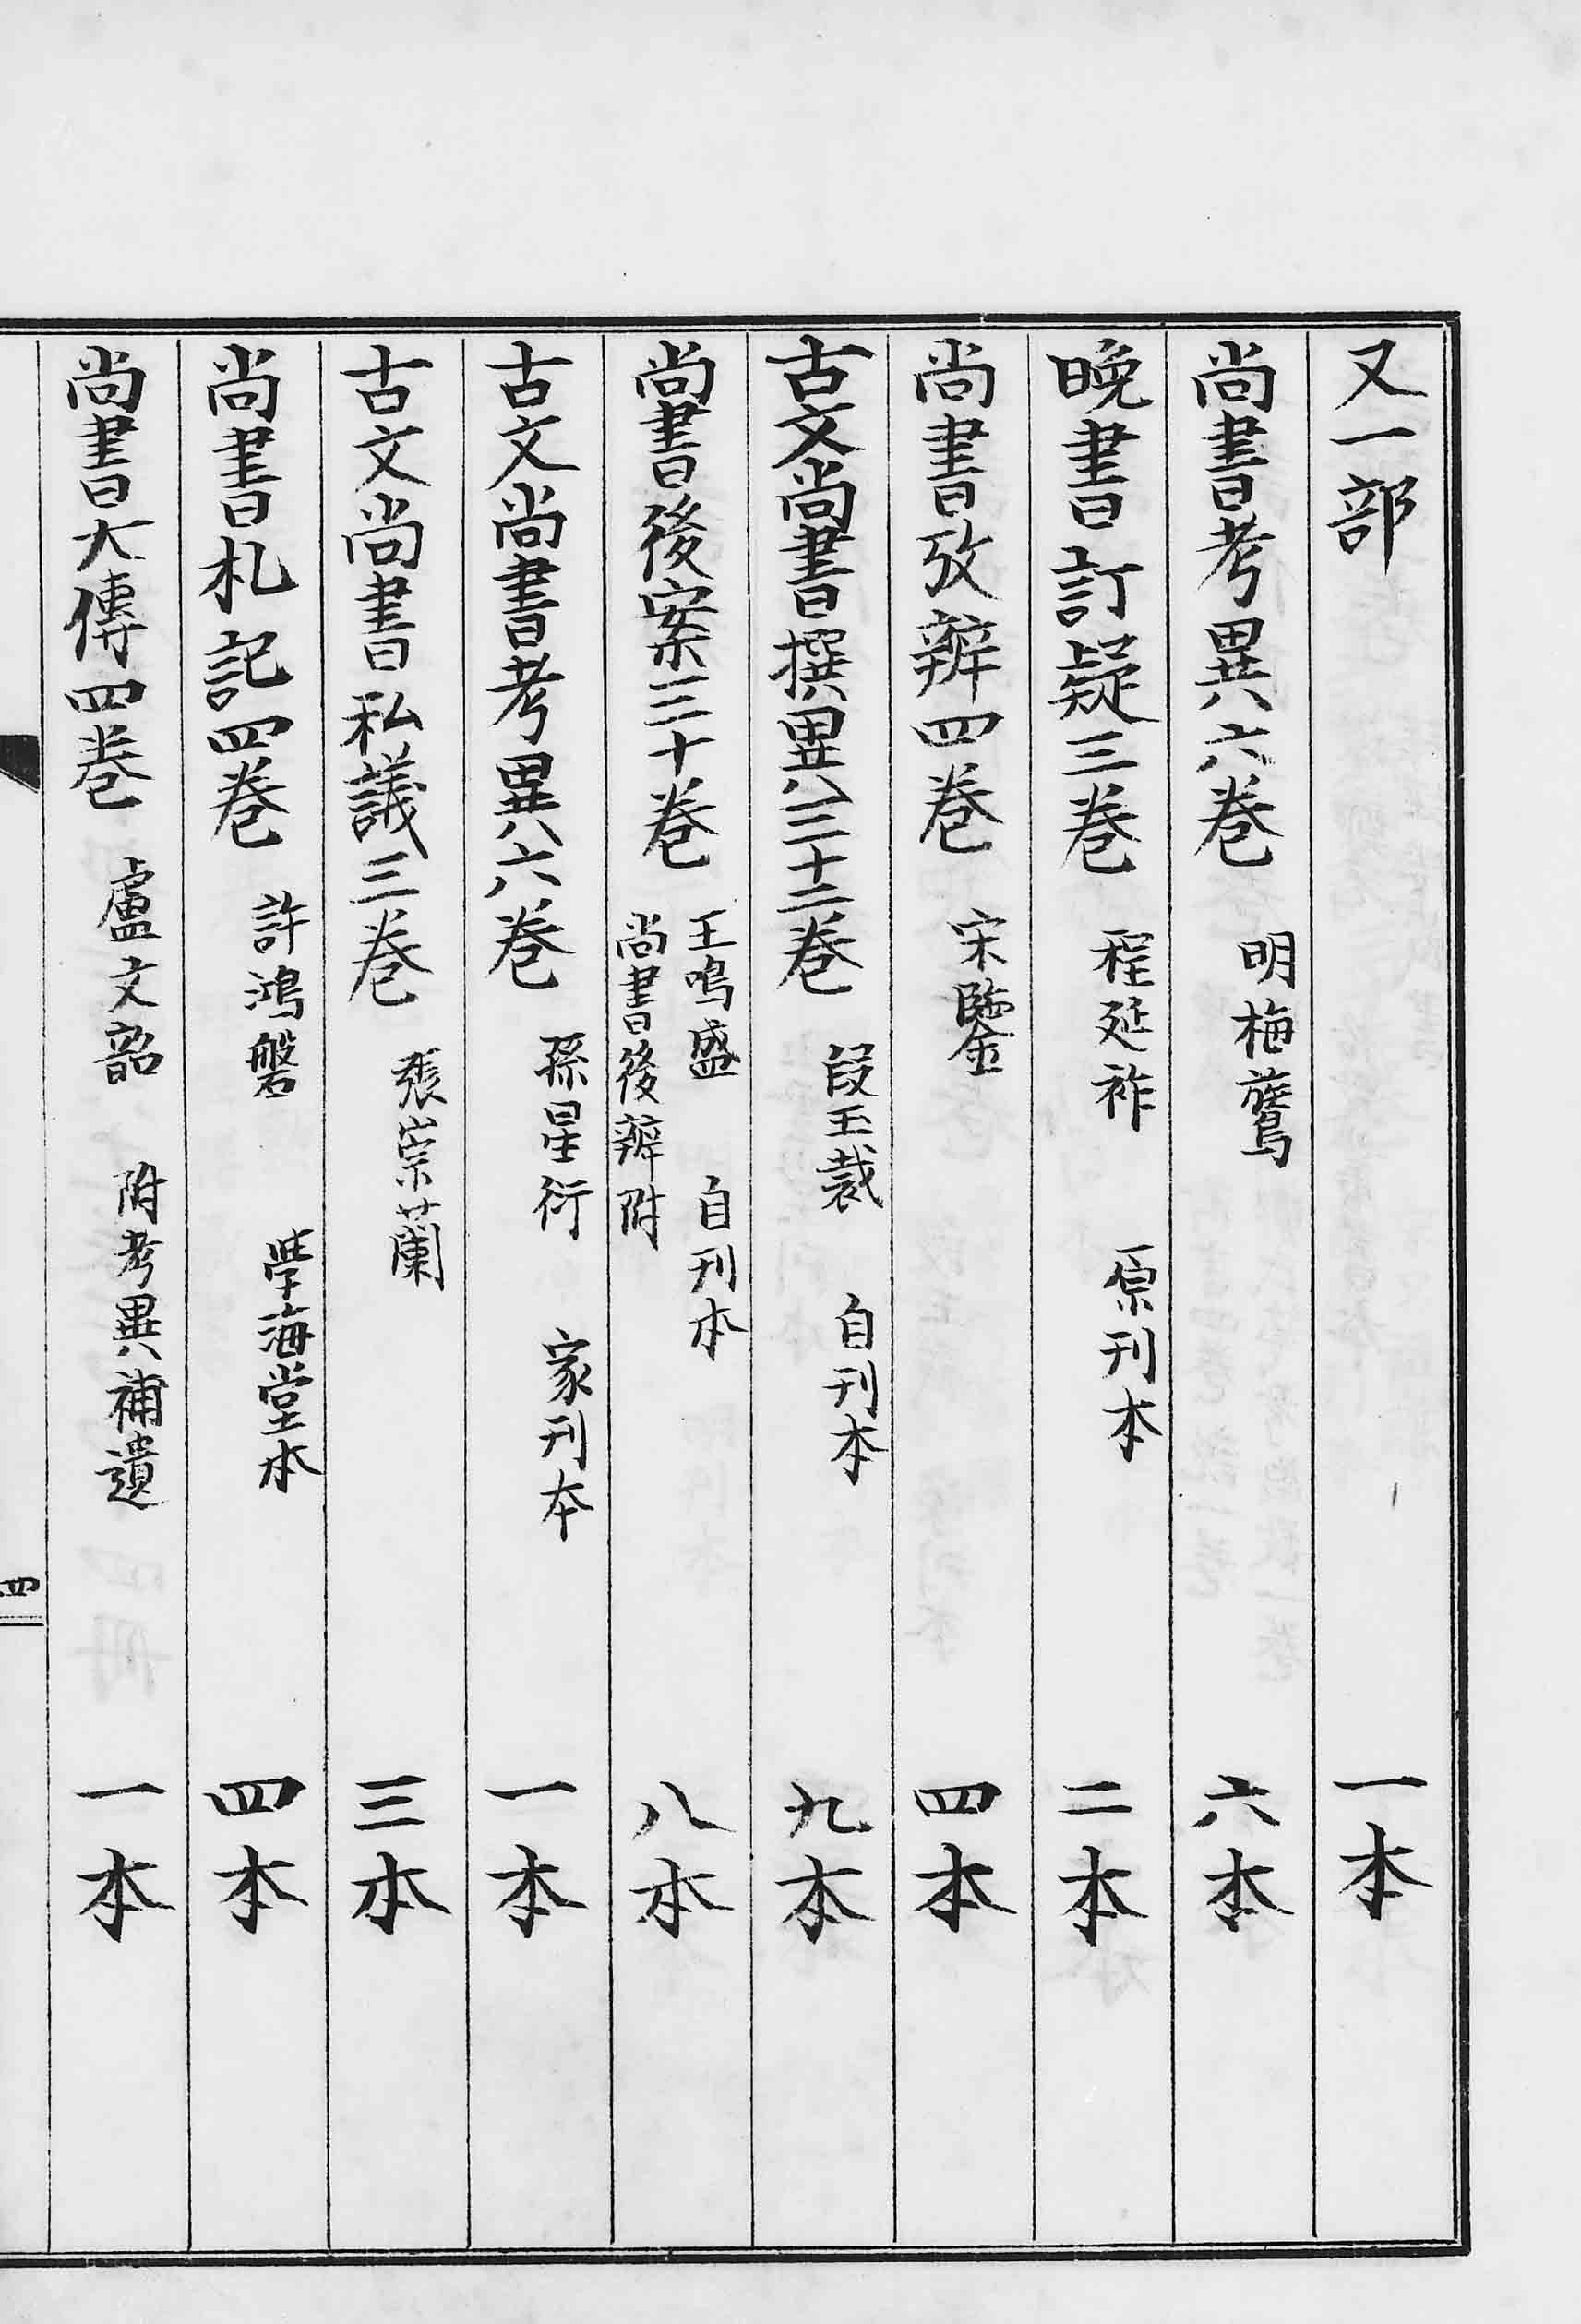 又一部 一本
尚書考異六卷 明梅鷟 六本
晚書訂疑三卷 程延祚 原刊本 二本
尚書攷辨四卷 宋鑒 四本
古文尚書撰異三十二卷 段玉裁 自刊本 九本
尚書後案三十卷 王鳴盛 自刊本 尚書後辨附 八本
古文尚書考異六卷 孫星衍 家刊本 一本
古文尚書私議三卷 張崇蘭 三本
尚書札記四卷 許鴻磐 學海堂本 四本
尚書大傳四卷 盧文韶 附考異補遺 一本
四